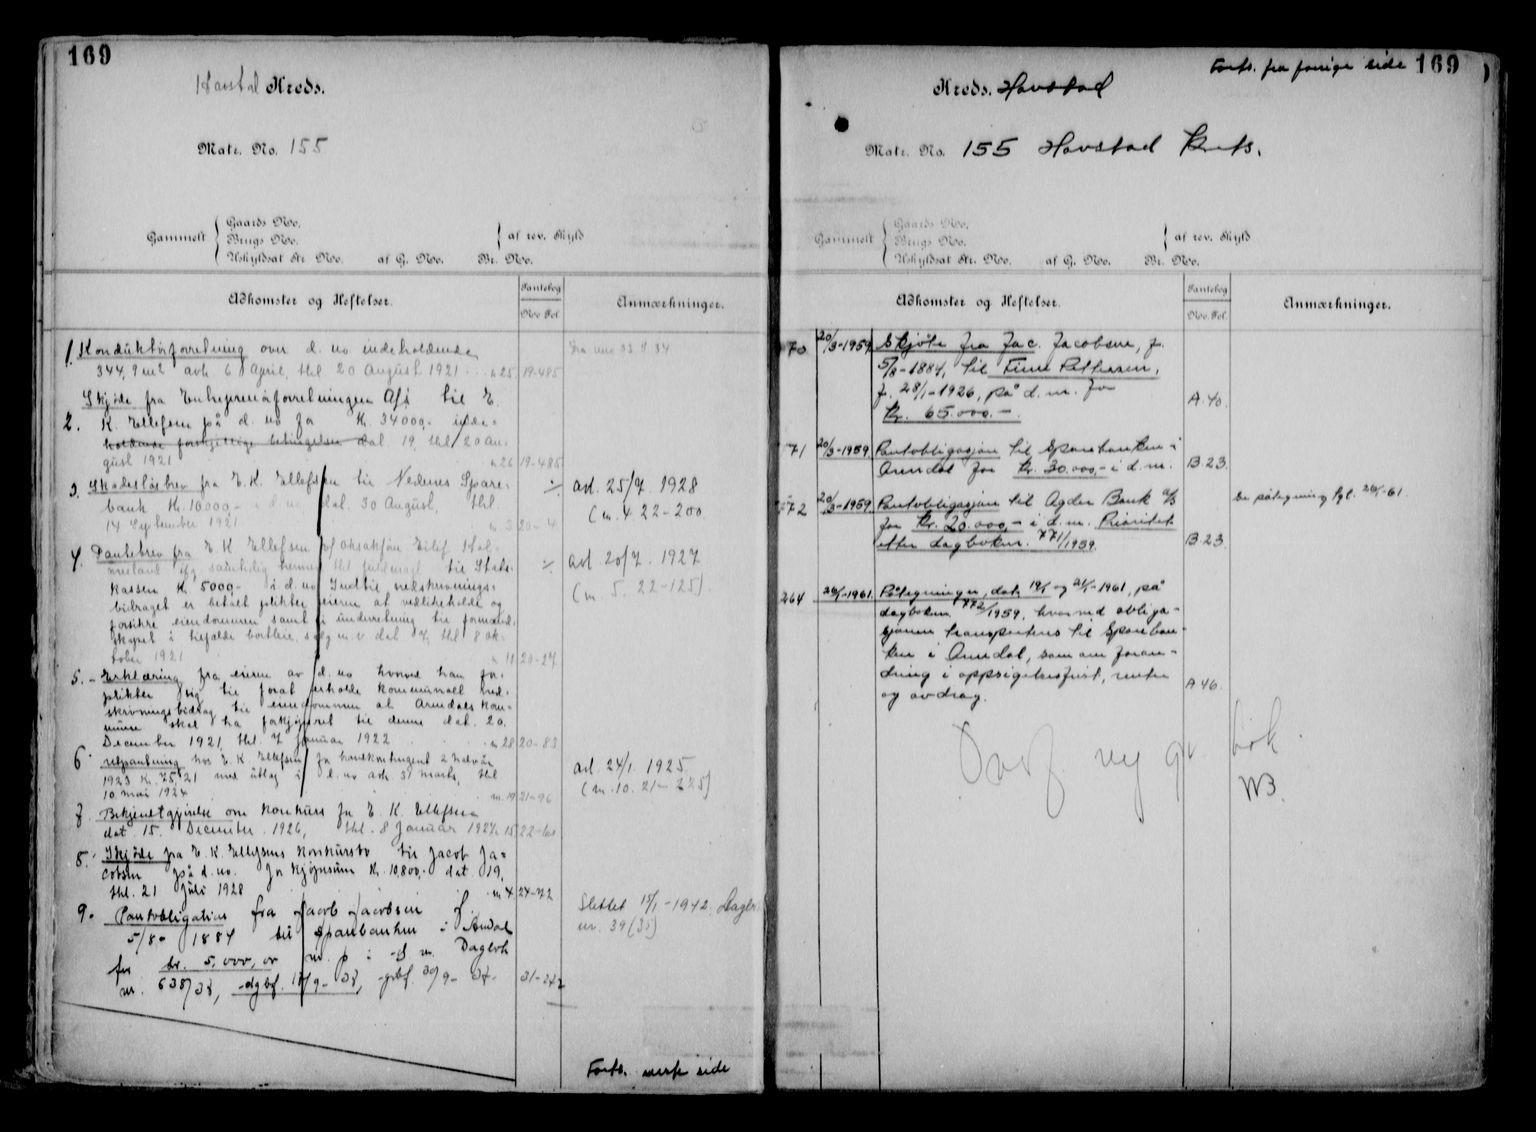 169
Havstad Kreds.
Matr. No. 155
Gammelt
Gaards No.
Brugs No.
Uskyldsat Nr. No. af G. No. Br. No.
af rev. Skyld
Adkomster og Heftelser.
Pantebog
No. Fol.
Anmærkninger.
1. Konduktørforretning over d. no indeholdende
344,9 m² avh. 6 April, thl 20 August 1921 n 25 19-485
Skjøde fra Entreprenørforretningen A/S til E.
2. K. Ellefsen på d. no for Kr. 34000,- inde-
holdende forskjellige betingelser dat. 19, thl 20 Au-
gust 1921 n 26 19-485
3. Skadesløsbrev fra E. K. Ellefsen til Nedenes Spare-
bank Kr. 10000,- i d. no dat. 30 August thl.
14 September 1921 20-4
avl. 25/7. 1928
(m. 4 22-200
4. Pantebrev fra E. K. Ellefsen
til Stats-
kassen Kr. 5000,- i d. no Indtil nedskrivnings-
bidraget er betalt plikter eieren at vedlikeholde og
forsikre eiendommen samt
dat 7, thl 8 ok-
tober 1921 n 11 20-27
avl 20/7. 1927
(m. 5. 22-125)
5. - Erklæring fra eieren av d. no hvorved han for-
plikter sig til for at erholde kommunall ned-
skrivningsbidrag til eiendommen at Arendals kom-
mune skal ha forkjøpsret til denne dat. 20.
December 1921, thl. 7 Januar 1922 n 28 20-83
6. Utpantning hos E. K. Ellefsen for 2 halvår
1923 Kr. 75,21 med utlæg i d. no avh. 31 marts, thl
10 mai 1924 m. 19 21-96
avl. 24/1. 1925
(m. 10. 21- 225)
7. Bekjendtgjørelse om konkurs for E. K. Ellefsen
dat 15. December 1926, thl. 8 Januar 1927 n. 15 22-60
8. Skjøde fra E. K. Ellefsens konkursbo til Jacob Ja-
cobsen på d. no. for kjøpesum Kr. 10,800,- dat 19,
thl. 21 Juli 1928 m 4 24-72
9. Pantobligation fra Jacob Jacobsen f.
5/8- 1884 til Sparebanken i Arendal
for kr. 5.000,00 m. p. i d. m. Dagbok
nr. 638/38, dgbf. 17/9-38, gbf. 30/9-38- 31-242
Slettet 15/1-1942. Dagb.
nr. 39 (35)
Forts. neste side
Forts. fra forrige side 169
Kreds. Havstad
Matr. No. 155 Havstad Krets.
Gammelt
Gaards No.
Brugs No.
Uskyldsat Nr. No. af G. No. Br. No.
af rev. Skyld
Adkomster og Heftelser.
Pantebog
No. Fol.
Anmærkninger.
20/3-1959 Skjöte fra Jac. Jacobsen, f.
5/8-1884, til Finn Pettersen,
f. 28/1-1926, på d. m. for
kr. 65.000.-. A. 40.
771 20/3-1959. Pantobligasjon til Sparebanken i
Arendal for kr. 30.000,- i d. m. B. 23.
772 20/3-1959 Pantobligasjon til Agder Bank A/S
for kr. 20.000,- i d. m. Prioritet
etter dagboknr. 771/1959. B 23.
Se påtegning tgl. 26/1-61.
264 26/1-1961. Påtegninger, dat. 19/1 og 21/1-1961, på
dagboknr. 772/1959, hvorved obliga-
sjonen transporteres til Spareban-
ken i Arendal, som om foran-
dring i oppsigelsesfrist, rente
og avdrag. A 46.
Overf. ny gr bok.
W3.